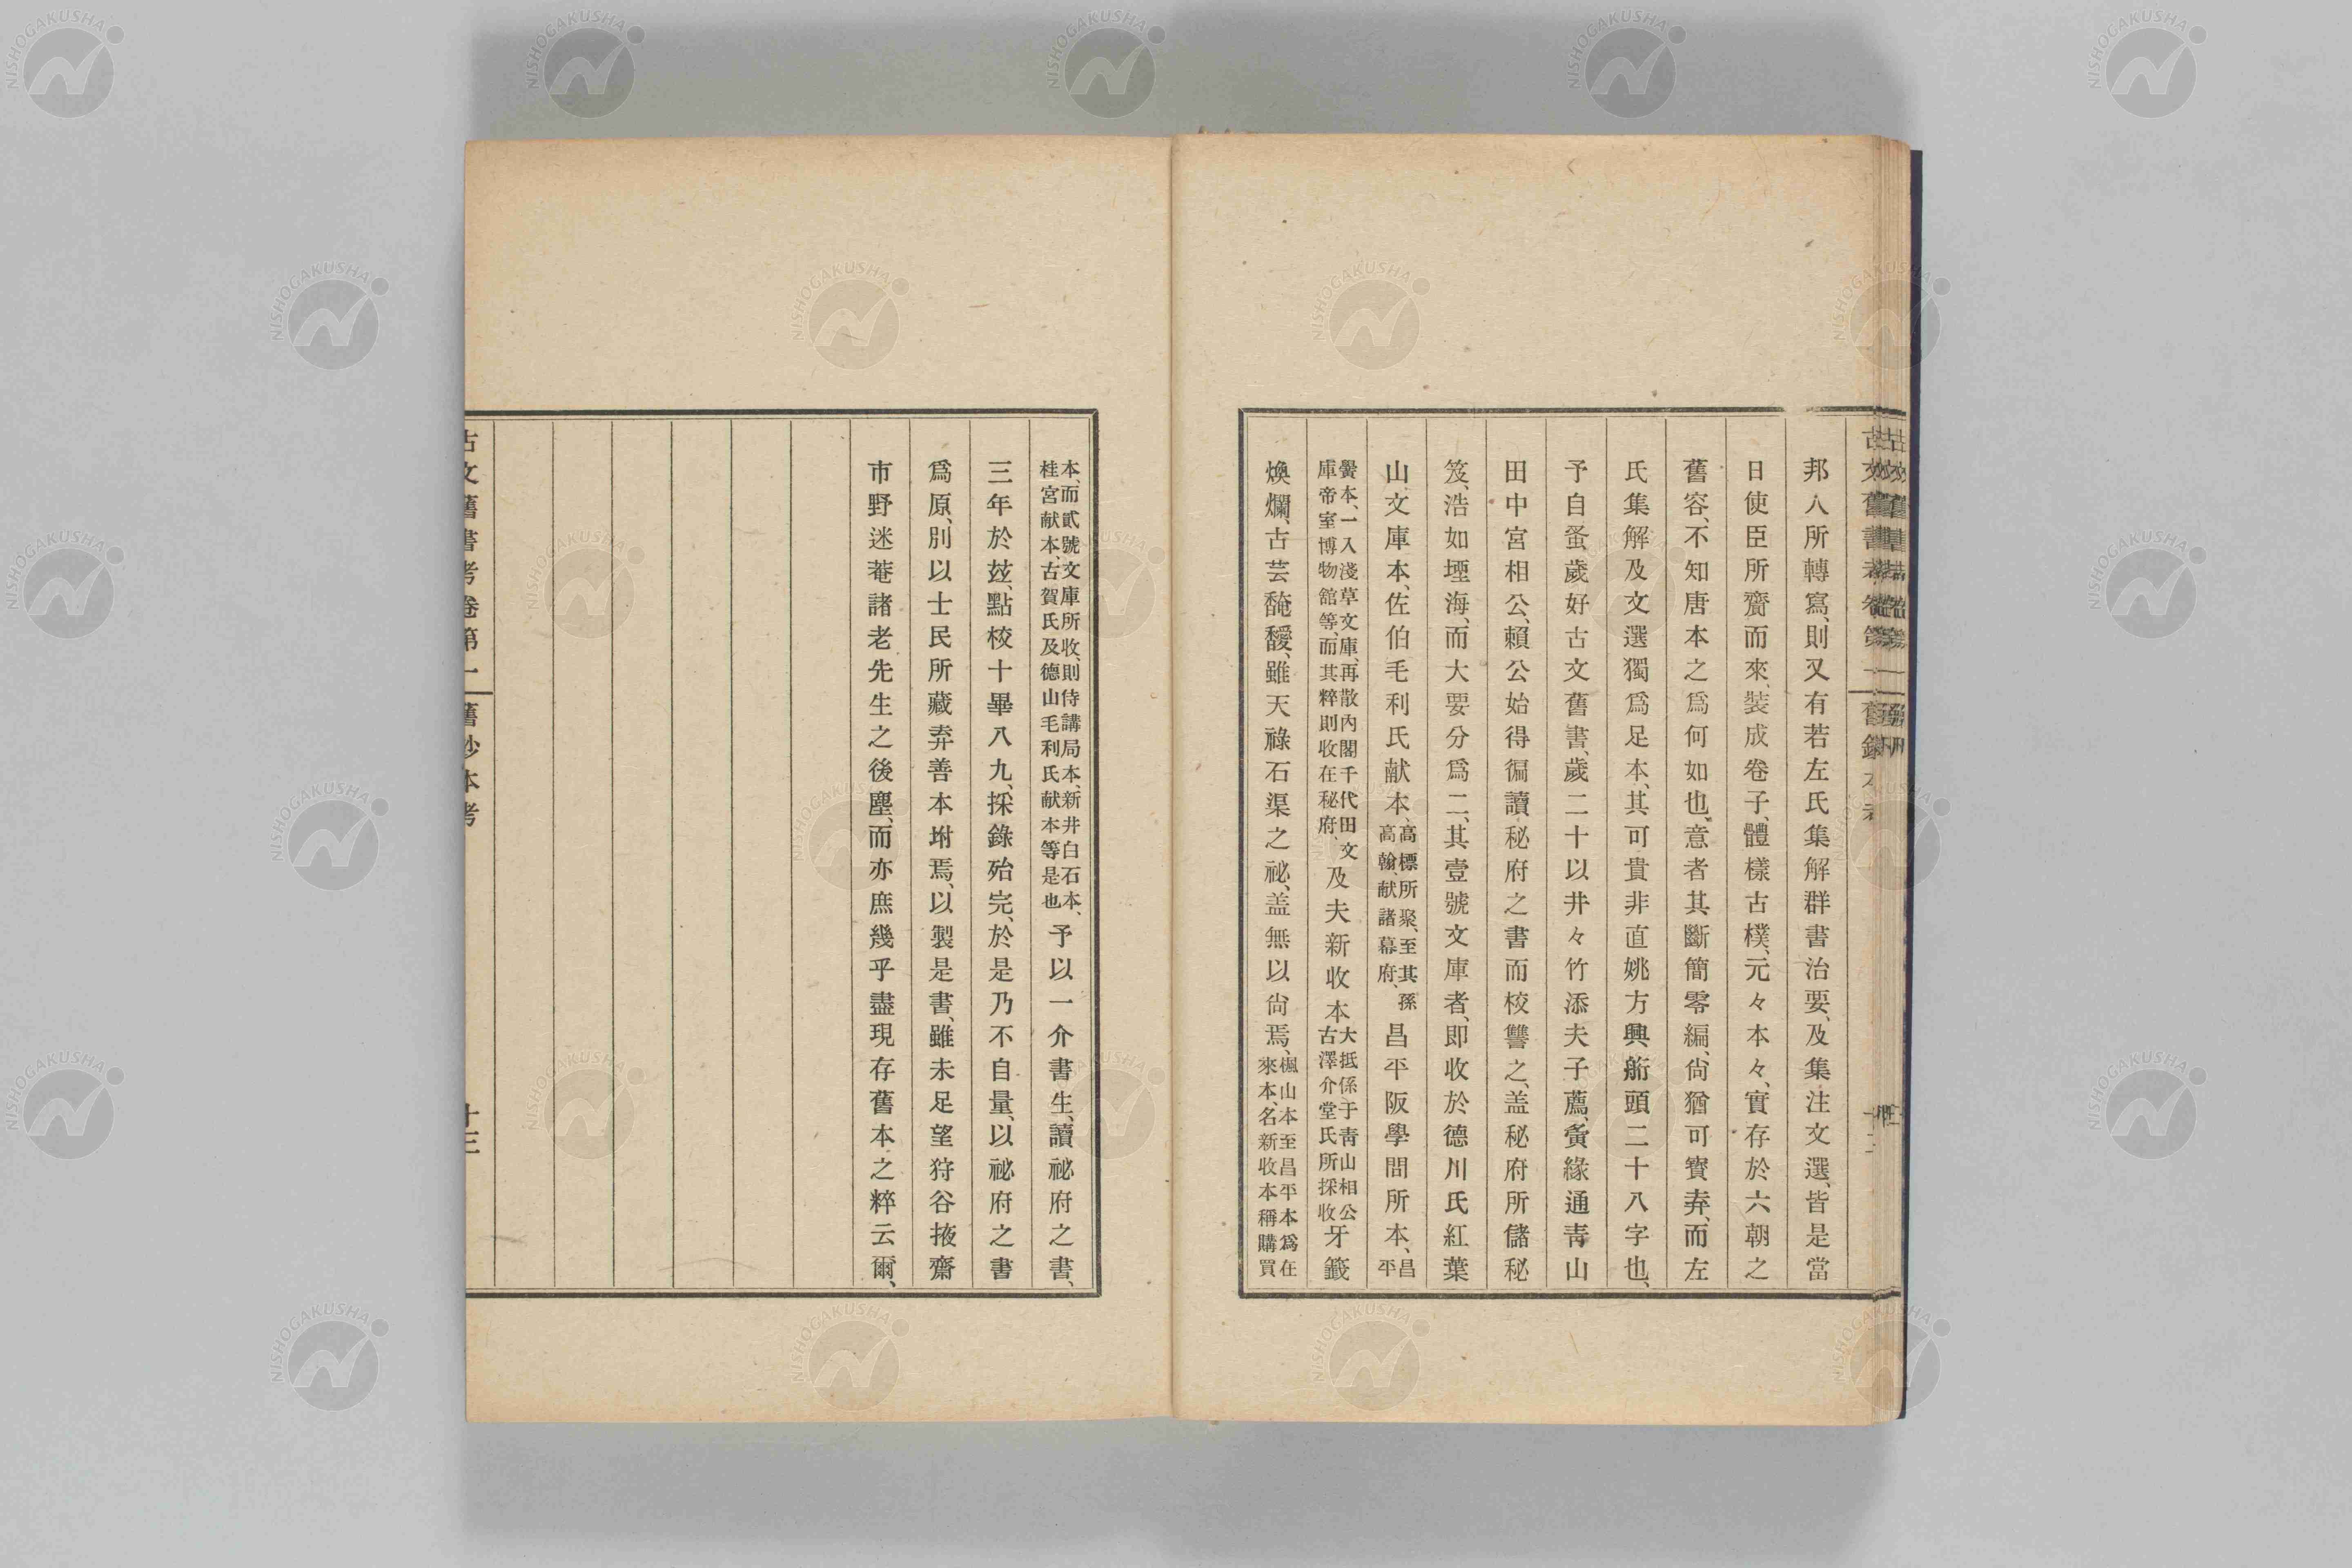 邦人所轉寫、則又有若左氏集解群書治要、及集注文選、皆是當
日使臣所齎而來、裝成卷子、體樣古樸、元々本々、實存於六朝之
舊容、不知唐本之爲何如也、意者其斷簡零編、尙猶可寶弆、而左
氏集解及文選獨爲足本、其可貴非直姚方興舫頭二十八字也、
予自蚤歲好古文舊書、歲二十以井々竹添夫子薦、夤緣通靑山
田中宮相公、賴公始得徧讀秘府之書而校讐之、盖秘府所儲秘
笈、浩如堙海、而大要分爲二、其壹號文庫者、即收於德川氏紅葉
山文庫本、佐伯毛利氏献本、高標所聚、至其孫高翰、献諸幕府、昌平阪學問所本、昌平
黌本、一入淺草文庫、再散內閣千代田文庫帝室博物舘等、而其粹則收在秘府、及夫新收本大抵係于靑山相公古澤介堂氏所採收牙籤
煥爛、古芸馣馤、雖天祿石渠之祕、盖無以尙焉、楓山本至昌平本爲在來本、名新收本稱購買
本、而貳號文庫所收、則侍講局本、新井白石本、桂宮献本、古賀氏及德山毛利氏献本等是也予以一介書生、讀祕府之書、
三年於玆、點校十畢八九、採錄殆完、於是乃不自量、以祕府之書
爲原、別以士民所藏弆善本坿焉、以製是書、雖未足望狩谷掖齋
市野迷菴諸老先生之後塵、而亦庶幾乎盡現存舊本之粹云爾、
古文舊書考卷第一 舊鈔本考 十三